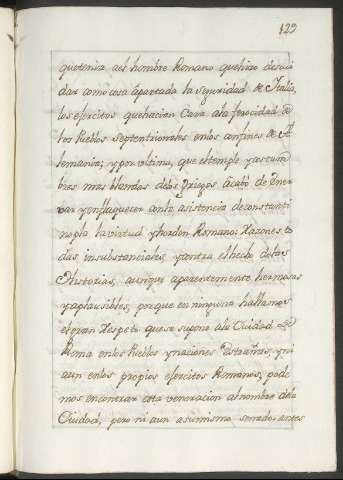 129
que tenia a el hombre Romano que hizo descui
dar como cosa apartada la seguridad de Italia,
los exercitos que hacian Cara a la ferocidad de
los Pueblos Septentrionales en los confines de A
lemania; y por ultimo, que el temple y costum
bres mas blandas de los Griegos acabó de Ener
var y enflaquecer con la asistencia de constanti
nopla la virtud y horden Romano: Razones to
das insubstanciales, y contra el hecho de las
Historias, aunque aparentemente hermosas
y aplausibles, porque en ninguna hallamos
el gran Respeto que se supone a la Ciudad de
Roma en los Pueblos y naciones Estrañas, y ni
aun en los propios exercitos Romanos, pode
mos encontrar esta veneracion al nombre de la
Ciudad, pero ni aun a su mismo senado: antes